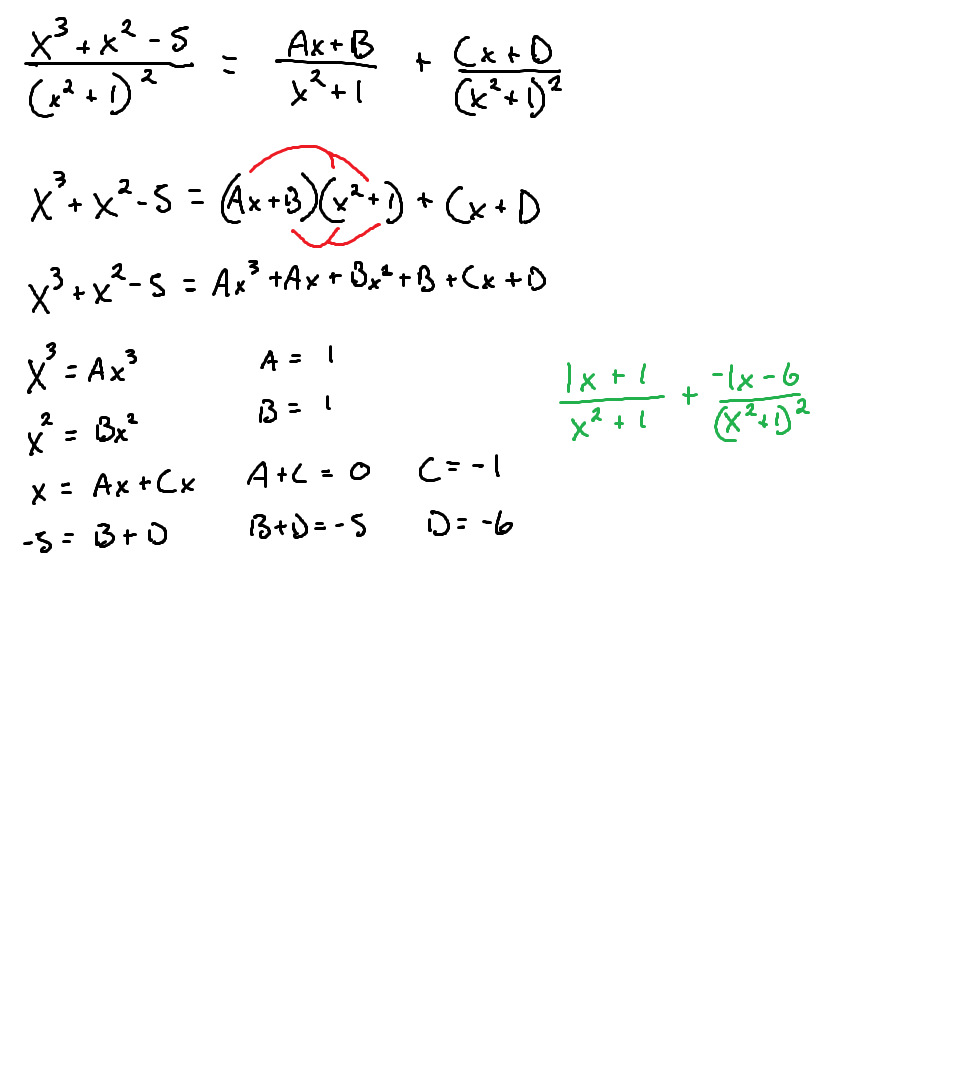 x³ + x² - 5 / (x² + 1)² = Ax + B / x² + 1 + Cx + D / (x² + 1)²
x³ + x² - 5 = (Ax + B)(x² + 1) + Cx + D
x³ + x² - 5 = Ax³ + Ax + Bx² + B + Cx + D
x³ = Ax³ A = 1
x² = Bx² B = 1
x = Ax + Cx A + C = 0 C = -1
-5 = B + D B + D = -5 D = -6
1x + 1 / x² + 1 + -1x - 6 / (x² + 1)²